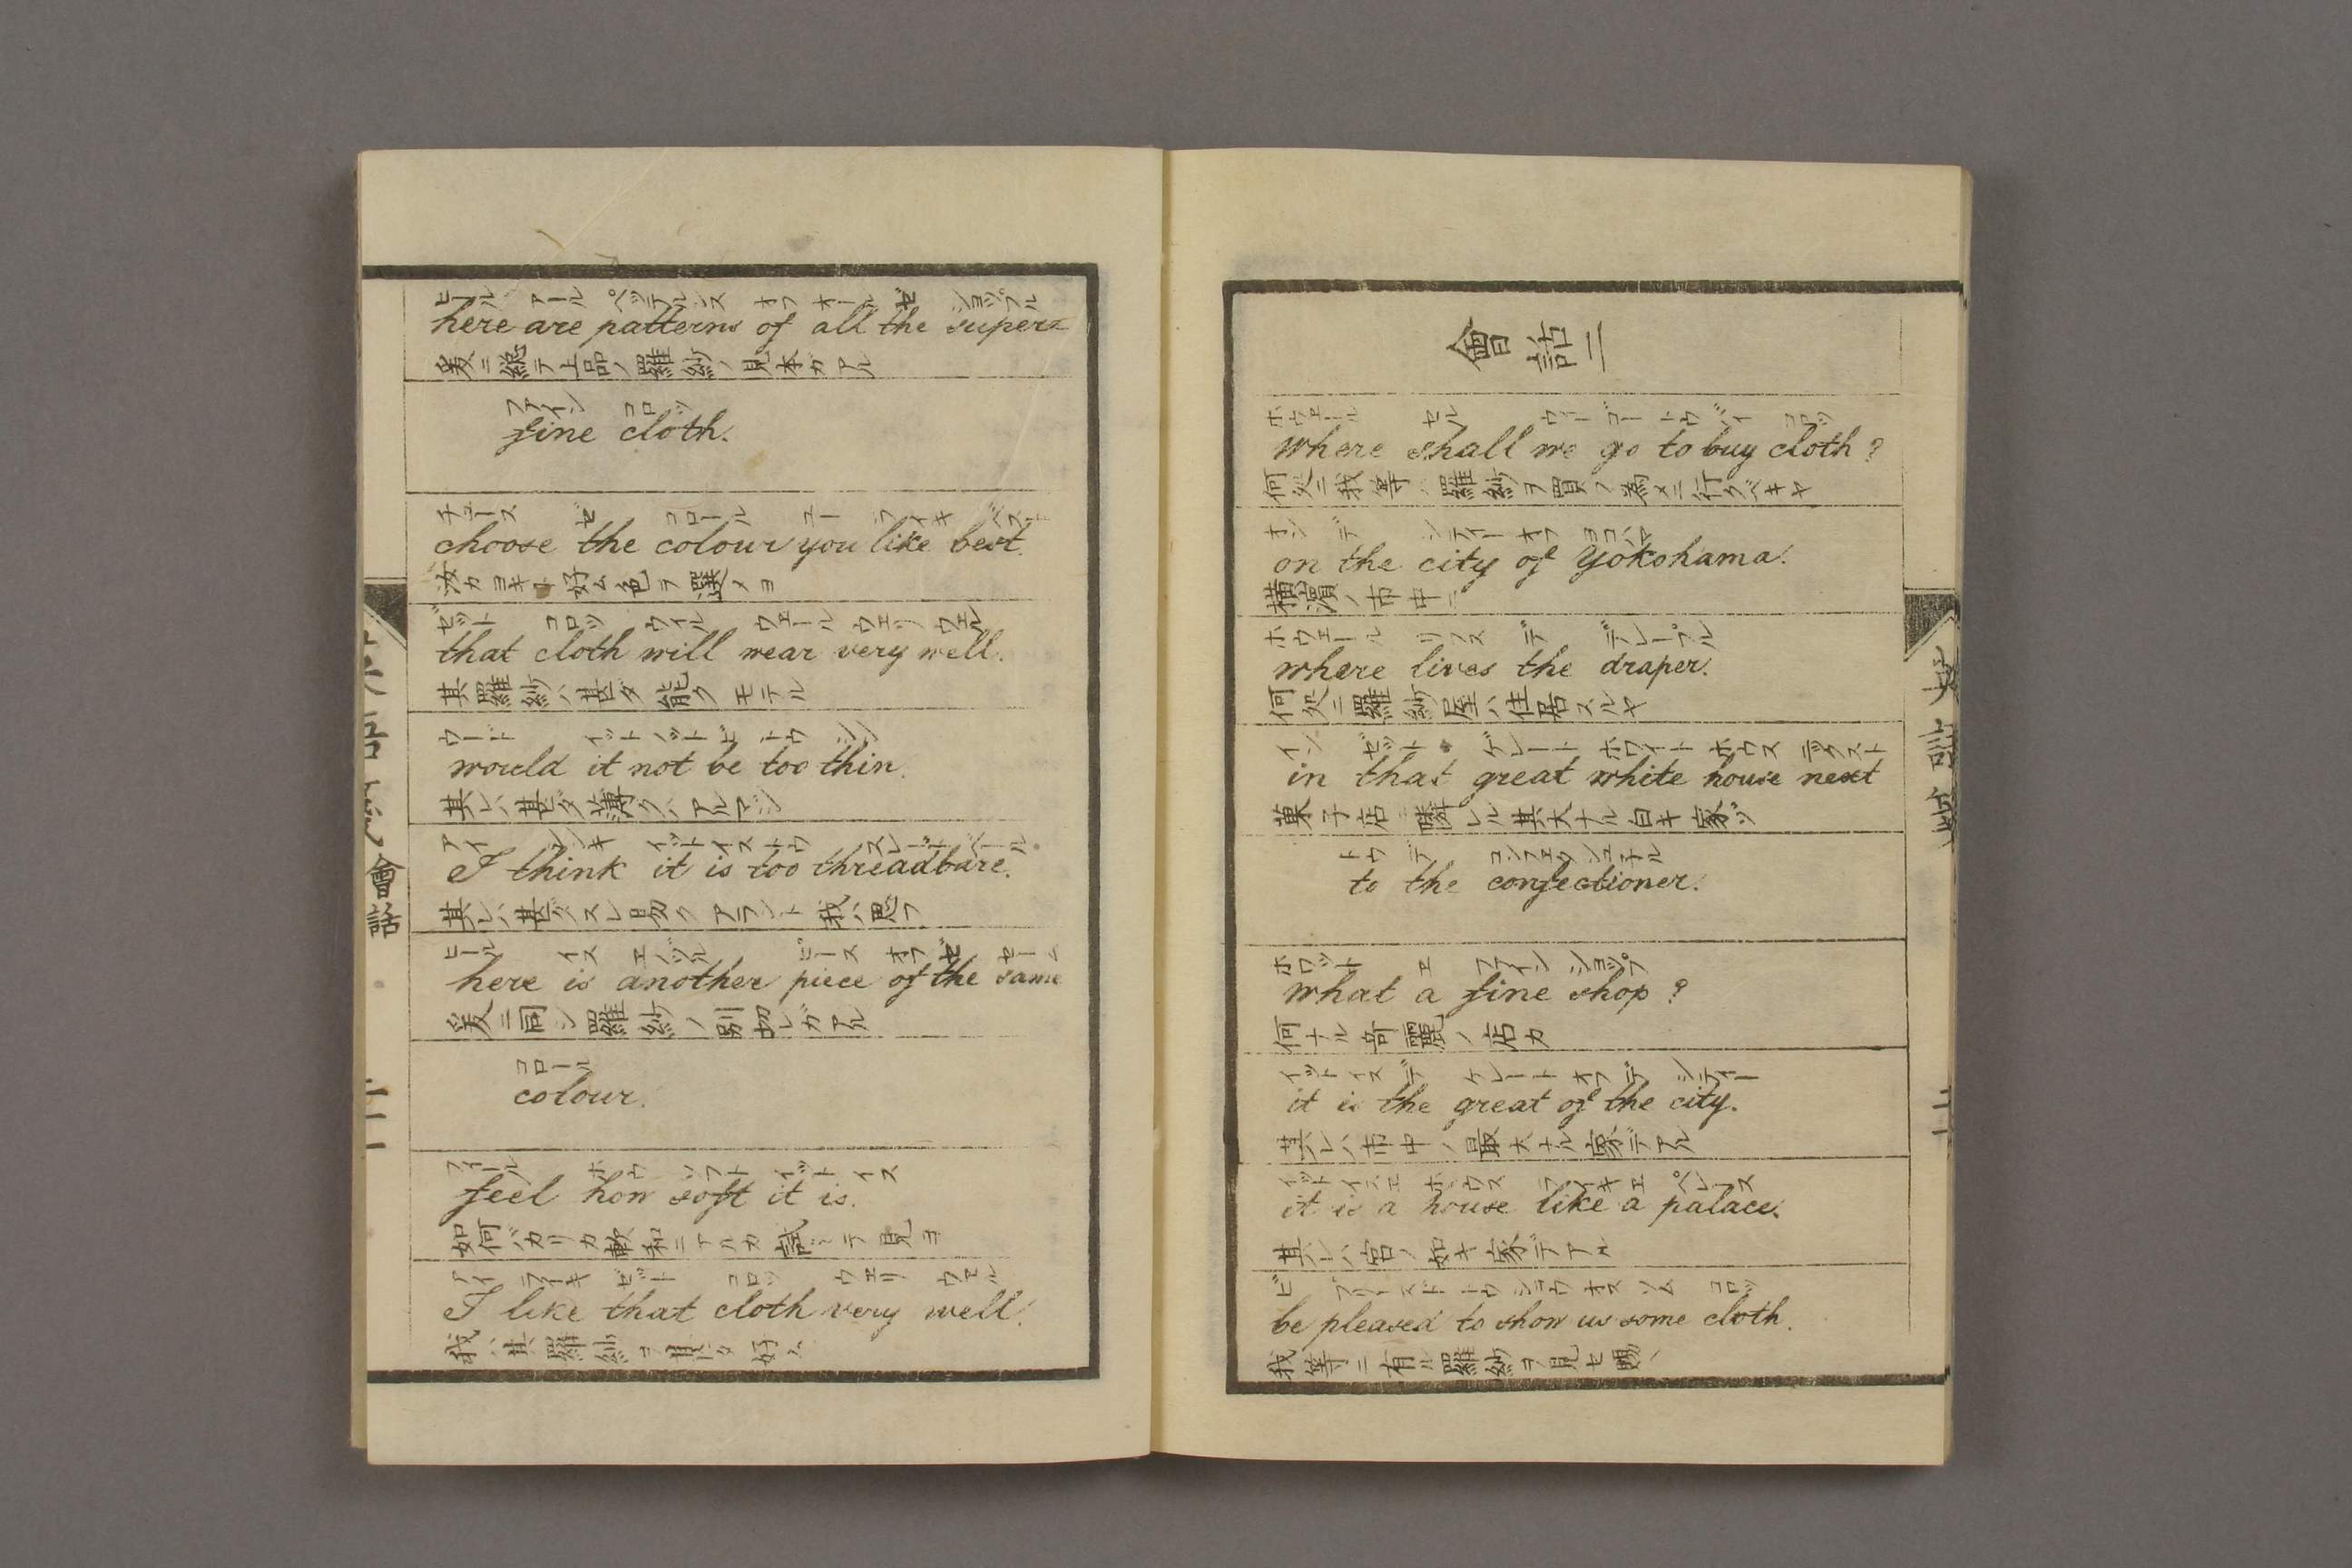 會話二
ホウェール セル ウィー ゴー トウ バイ コロッ
where shall we go to buy cloth?
何処ニ我等ハ羅紗ヲ買フ為メニ行クベキヤ
オン デ シティー オフ ヨコハマ
on the city of yokohama.
横濱ノ市中ニ
ホウェール リフス デ デレープル
where lives the draper.
何処ニ羅紗屋ハ住居スルヤ
イン ゼット ゲレート ホワイト ホウス 子クスト
in that great white house next
菓子店ニ隣レル其大ナル白キ家ゾ
トウ デ コンフェクショ子ル
to the confectioner.
ホワット エ ファイン ショップ
what a fine shop?
何ナル奇麗ノ店カ
イット イス デ ゲレート オフ デ シティー
it is the great of the city.
其レハ市中ノ最大ナル家デアル
イット イス エ ホウス ライキ エ ペレース
it is a house like a palace.
其レハ宮ノ如キ家デアル
ビ プリースド トウ ショウ オス ソム コロッ
be pleased to show us some cloth.
我等ニ有ル羅紗ヲ見セ賜ヘ
ヒール アール ペッテルンス オフ オール ゼ
here are patterns of all the super=
爰ニ総テ上品ノ羅紗ノ見本ガアル
ファイン コロッ
fine cloth.
チュース ゼ コロール ユー ライキ ベスト
choose the colour you like best.
汝カヨキ好ム色ヲ選メヨ
ゼット コロッ ウイル ウェール ウェリ ウェル
that cloth will wear very well.
其羅紗ハ甚タ能ク モテル
ウード イット ノット ビ トウ シン
would it not be too thin.
其レハ甚ダ薄クハアルマジ
アイ シンキ イット イス トウ スレッドベール
I think it is too threadbare.
其レハ甚ダスレ易ク アラント我ハ思フ
ヒール イス エノゾル ピース オフ ゼ セーム
here is another piece of the same
爰ニ同シ羅紗ノ別切レガアル
コロール
colour.
フィール ホウ ソフト イット イス
feel how soft it is.
如何バカリカ軟和ニアルカ試ミテ見ヨ
アイ ライキ ゼット コロッ ウェリ ウェル
I like that cloth very well.
我ハ其羅紗ヲ甚タ好ム
會話
二